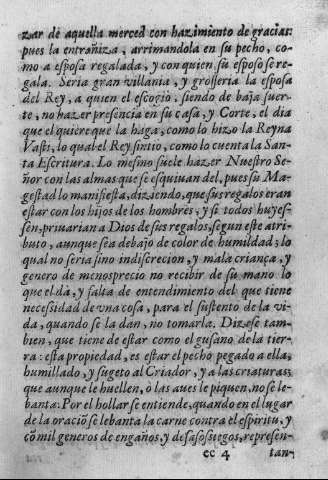 zar de aquella merced con hazimiento de gracias:
pues la entrañiza, arrimandola en su pecho, co-
mo a esposa regalada, y con quien su esposo se re-
gala. Seria gran villania, y grosseria la esposa
del Rey, a quien el escogio, siendo de baja suer-
te, no hazer presencia en su casa, y Corte, el dia
que el quiere que la haga, como lo hizo la Reyna
Vasti, lo qual el Rey sintio, como lo cuenta la San-
ta Escritura. Lo mesmo suele hazer Nuestro Se-
ñor con las almas que se esquiuan del, pues su Ma-
gestad lo manifiesta, diziendo, que sus regalos eran
estar con los hijos de los hombres, y si todos huyes-
sen, priuarian a Dios de sus regalos, segun este atri-
buto, aunque sea debajo de color de humildad; lo
qual no seria sino indiscrecion, y mala criança, y
genero de menosprecio no recibir de su mano lo
que el dà, y falta de entendimiento del que tiene
necessidad de vna cosa, para el sustento de la vi-
da, quando se la dan, no tomarla. Dizese tam-
bien, que tiene de estar como el gusano de la tier-
ra: esta propiedad, es estar el pecho pegado a ella,
humillado, y sugeto al Criador, y a las criaturas;
que aunque le huellen, o las aues le piquen, no se le-
banta: Por el hollar se entiende, quando en el lugar
de la oraciõ se lebanta la carne contra el espiritu, y
cõ mil generos de engaños, y desasosuegos, represen-
cc 4 tan-